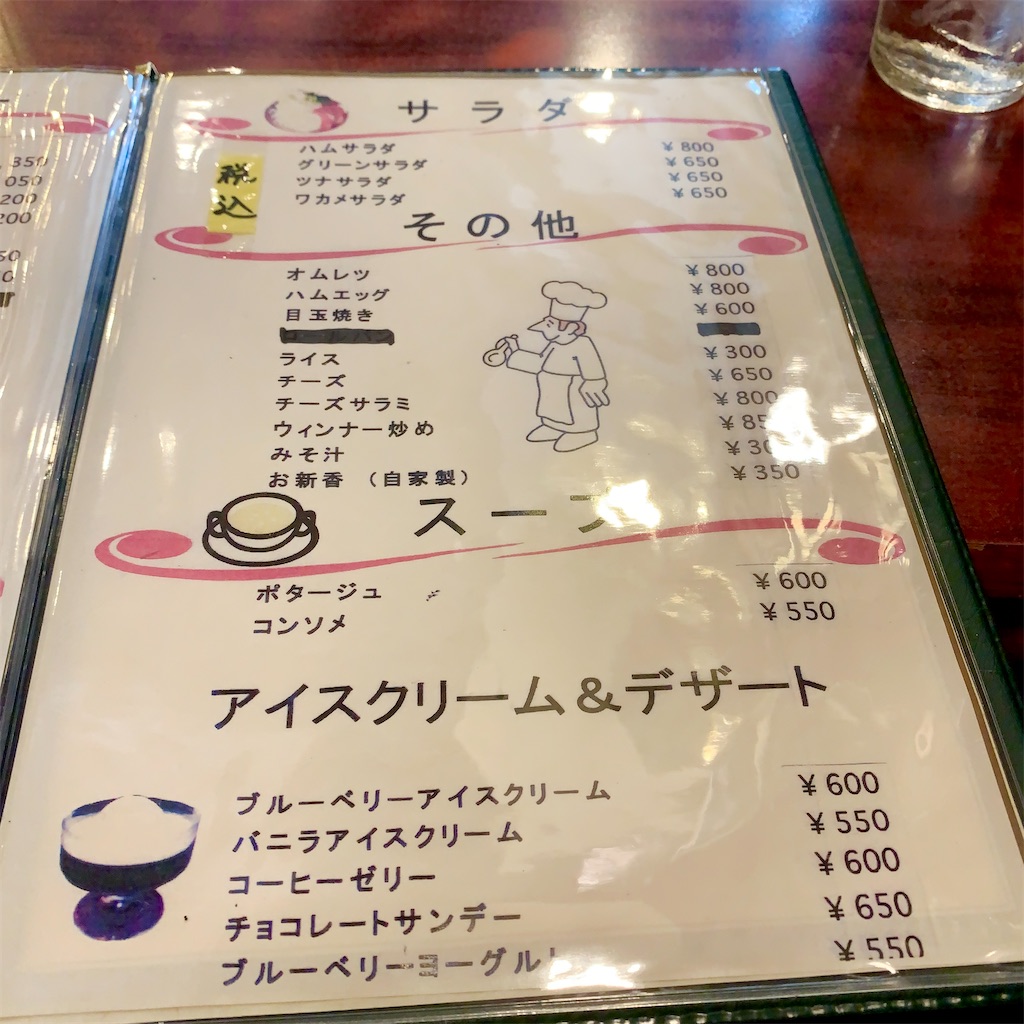 350
050
200
200
50
0
サラダ
税込
ハムサラダ ¥800
グリーンサラダ ¥650
ツナサラダ ¥650
ワカメサラダ ¥650
その他
オムレツ ¥800
ハムエッグ ¥800
目玉焼き ¥600
ライス ¥300
チーズ ¥650
チーズサラミ ¥800
ウィンナー炒め ¥85
みそ汁 ¥30
お新香 (自家製) ¥350
スープ
ポタージュ ¥600
コンソメ ¥550
アイスクリーム&デザート
ブルーベリーアイスクリーム ¥600
バニラアイスクリーム ¥550
コーヒーゼリー ¥600
チョコレートサンデー ¥650
ブルーベリーヨーグルト ¥550